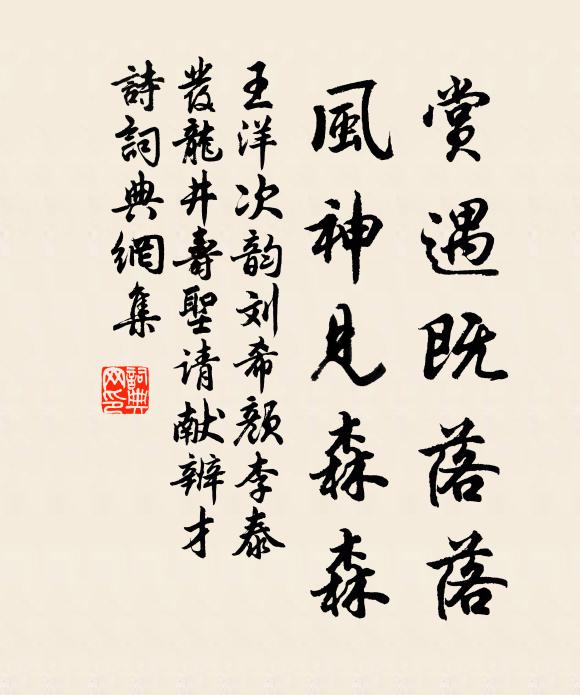 赏遇既落落
風神見森森
王洋次韵刘希颜李泰
發龍井壽聖请献辨才
詩詞典網集
詞典
网印